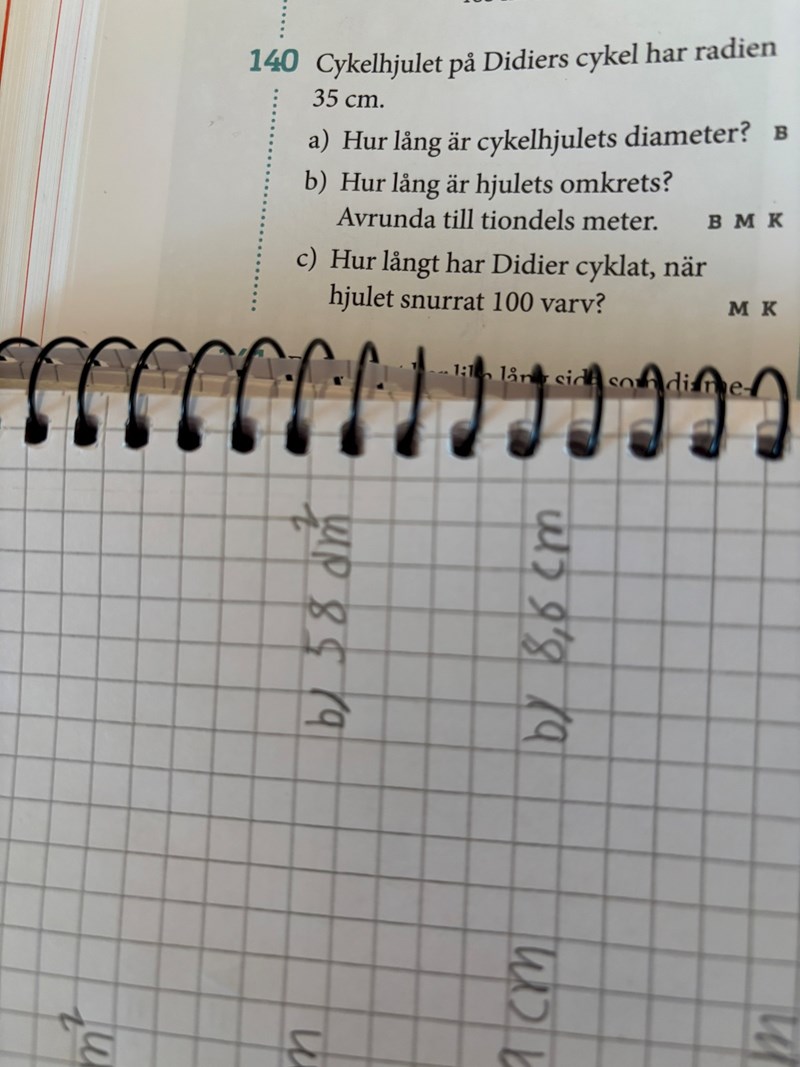 140 Cykelhjulet på Didiers cykel har radien
35 cm.
a) Hur lång är cykelhjulets diameter? B
b) Hur lång är hjulets omkrets?
Avrunda till tiondels meter. B M K
c) Hur långt har Didier cyklat, när
hjulet snurrat 100 varv? M K
lång sida som diame-
b) 58 dm²
b) 8,9 cm
cm
m²
m
m